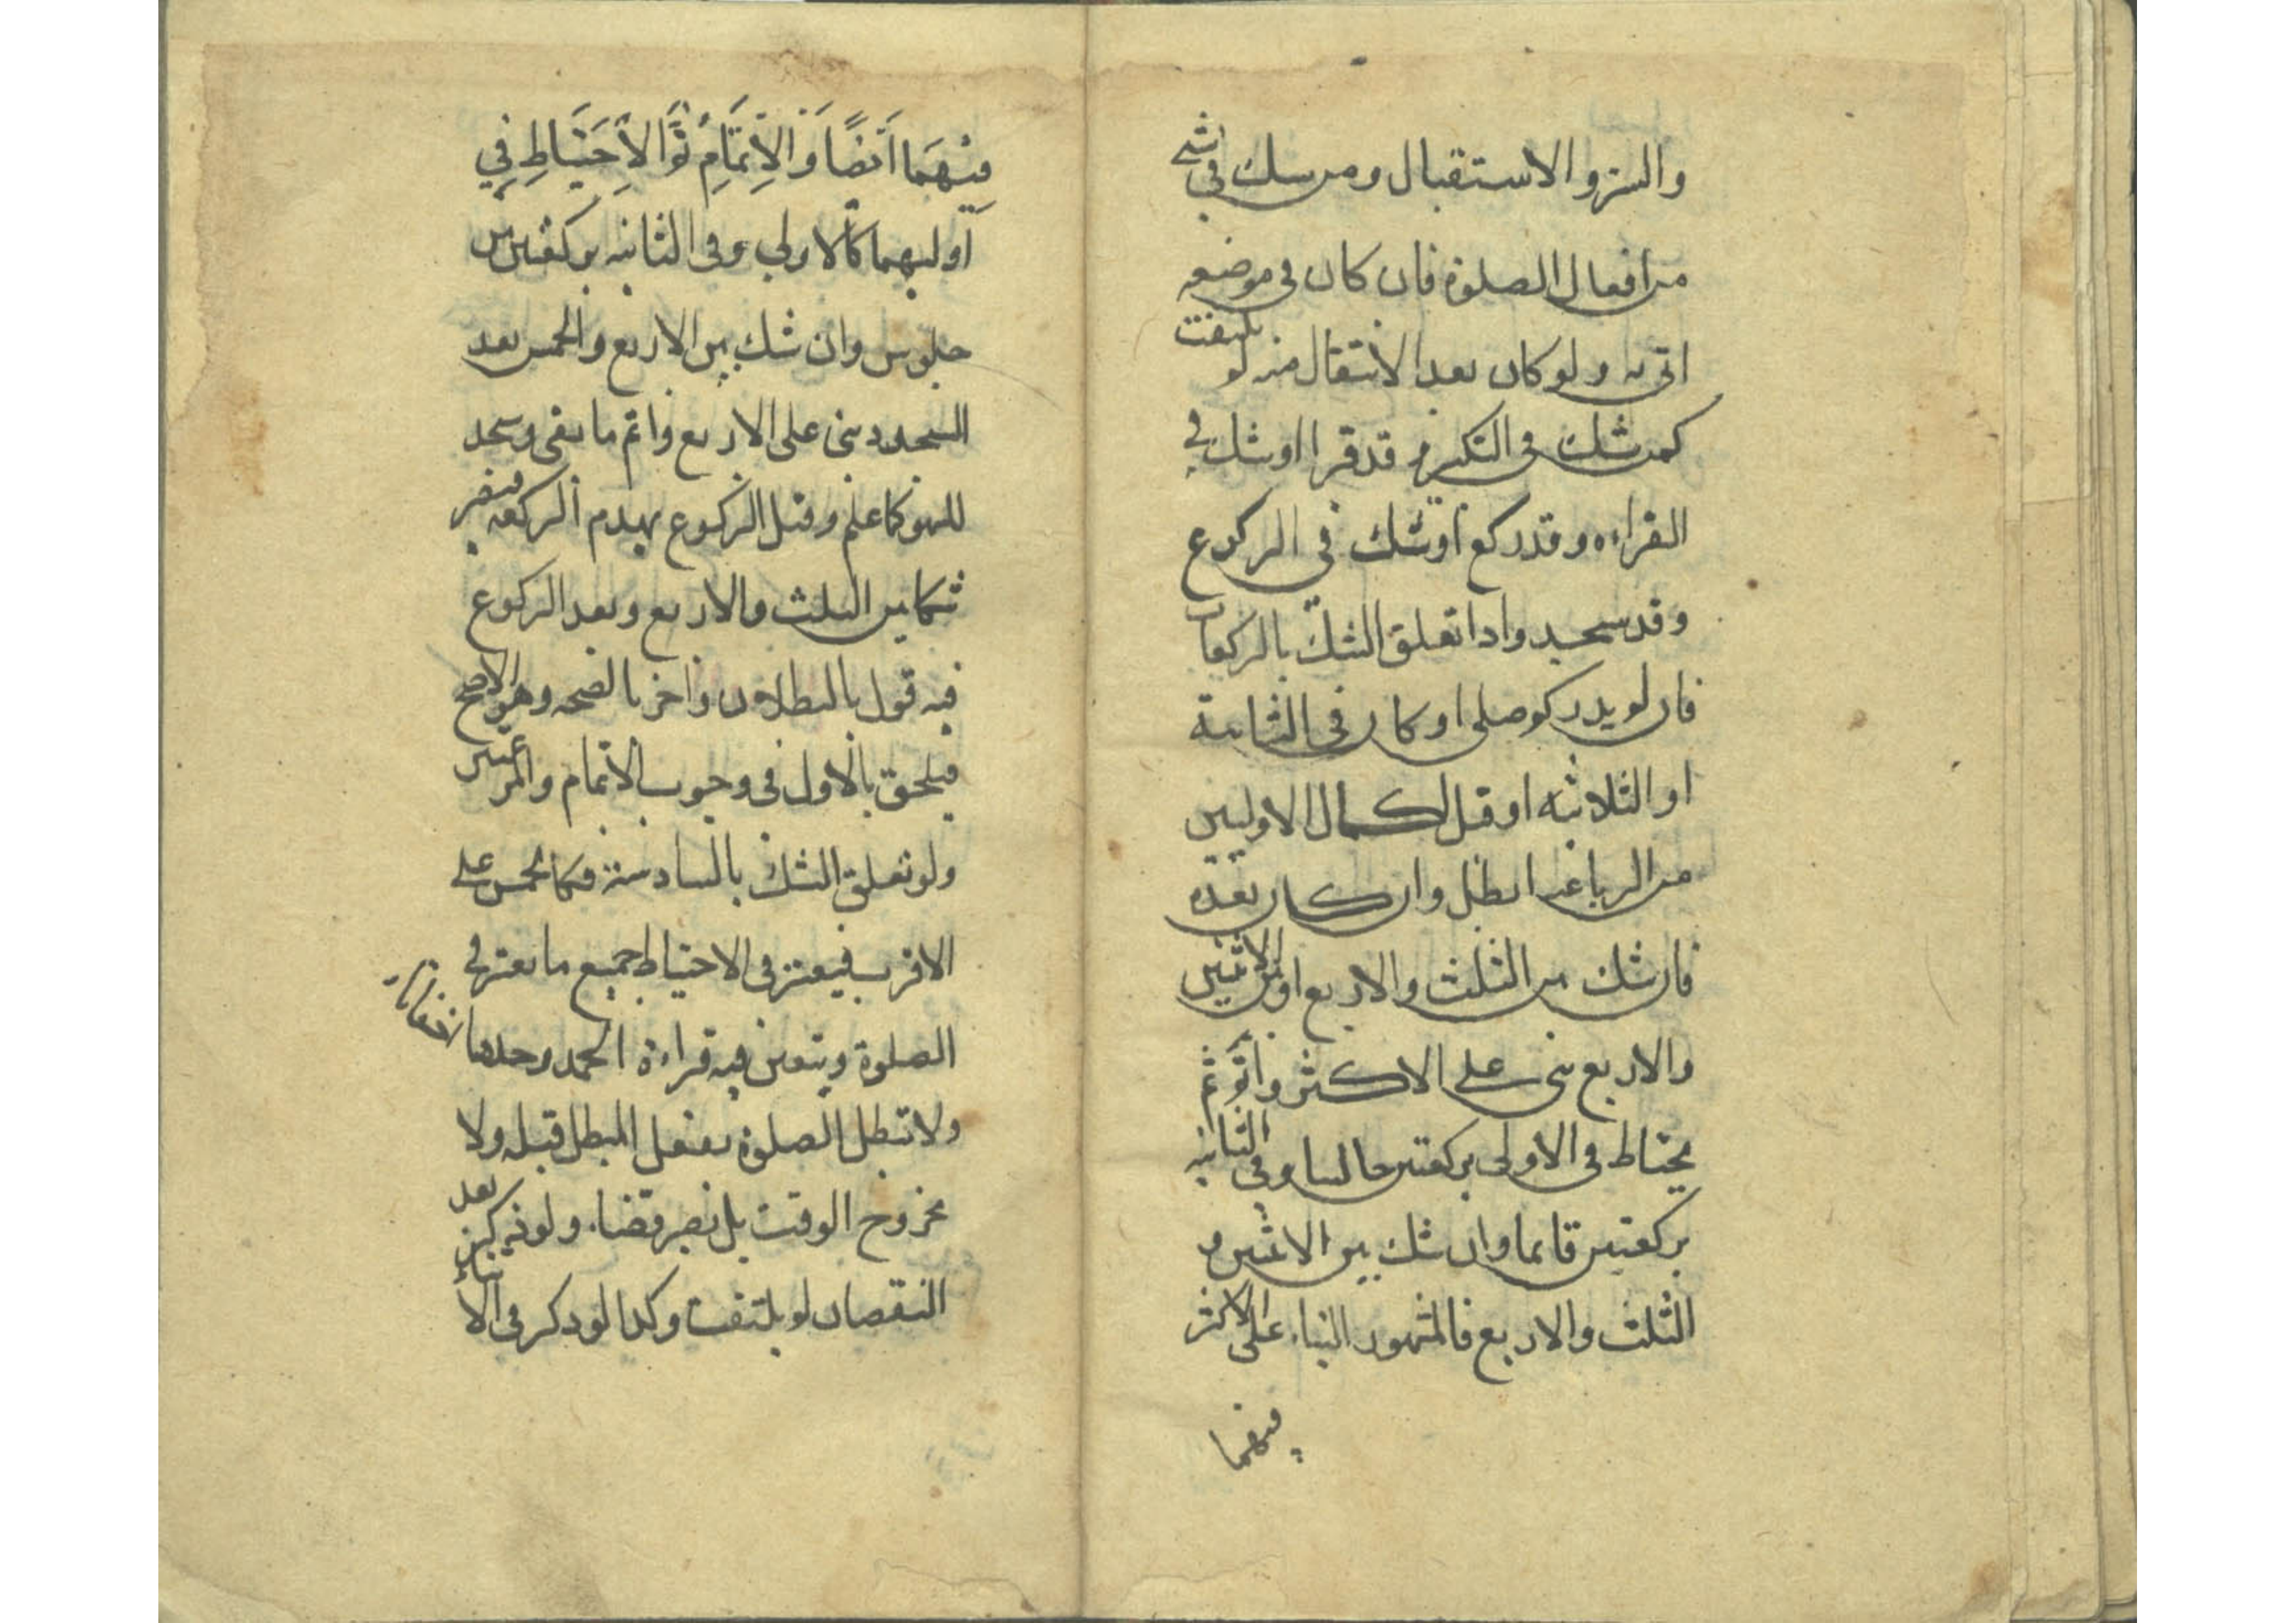 والستر والاستقبال ومن شك في شي
من افعال الصلوة فان كان في موضعه
اتى به ولو كان بعد الانتقال منه لم يلتفت
كمن شك في التكبير و قد قرا او شك في
القراءه وقد ركع او شك في الركوع
وقد سجد واذا تعلق الشك بالركعات
فان لم يدر كم صلى او كان في الثنائية
او الثلاثيه او قبل اكمال الاوليين
من الرباعيه ابطل وان كان بعده
فان شك بين الثلث والاربع او بين الاثنين
والاربع بنى على الاكثر واتم ثم
يحتاط في الاولى بركعتين جالسا وفي الثانيه
بركعتين قايما وان شك بين الاثنين و
الثلث والاربع فالمشهور البناء على الاكثر
فيهما
فِيْهِمَا اَيْضًا وَ الاِتمَامِ ثُمَّ الاِحْتِيَاطِ فِي
اوليهما كالاولى وفى الثانيه بركعتين من
جلوس وان شك بين الاربع والخمس بعد
السجود بنى على الاربع واتم ما بقى وسجد
للسهو كما علم وقبل الركوع يهدم الركعه فيصير
شكا بين الثلث والاربع وبعد الركوع
فيه قول بالبطلان واخر بالصحه وهو الاصح
فيلحق بالاول في وجوب الاتمام والمرغمتين
ولو تعلق الشك بالسادسة فكالخمس على
الاقرب فيعتبر في الاحتياط جميع ما يعتبر في
الصلوة ويتعين فيه قراءة الحمد وحدها اخفاتا
ولا تبطل الصلوة بفعل المبطل قبله ولا
بخروج الوقت بل يصير قضاء ولو ذكر بعد
النقصان لم يلتفت وكذا لو ذكر في الاثناء